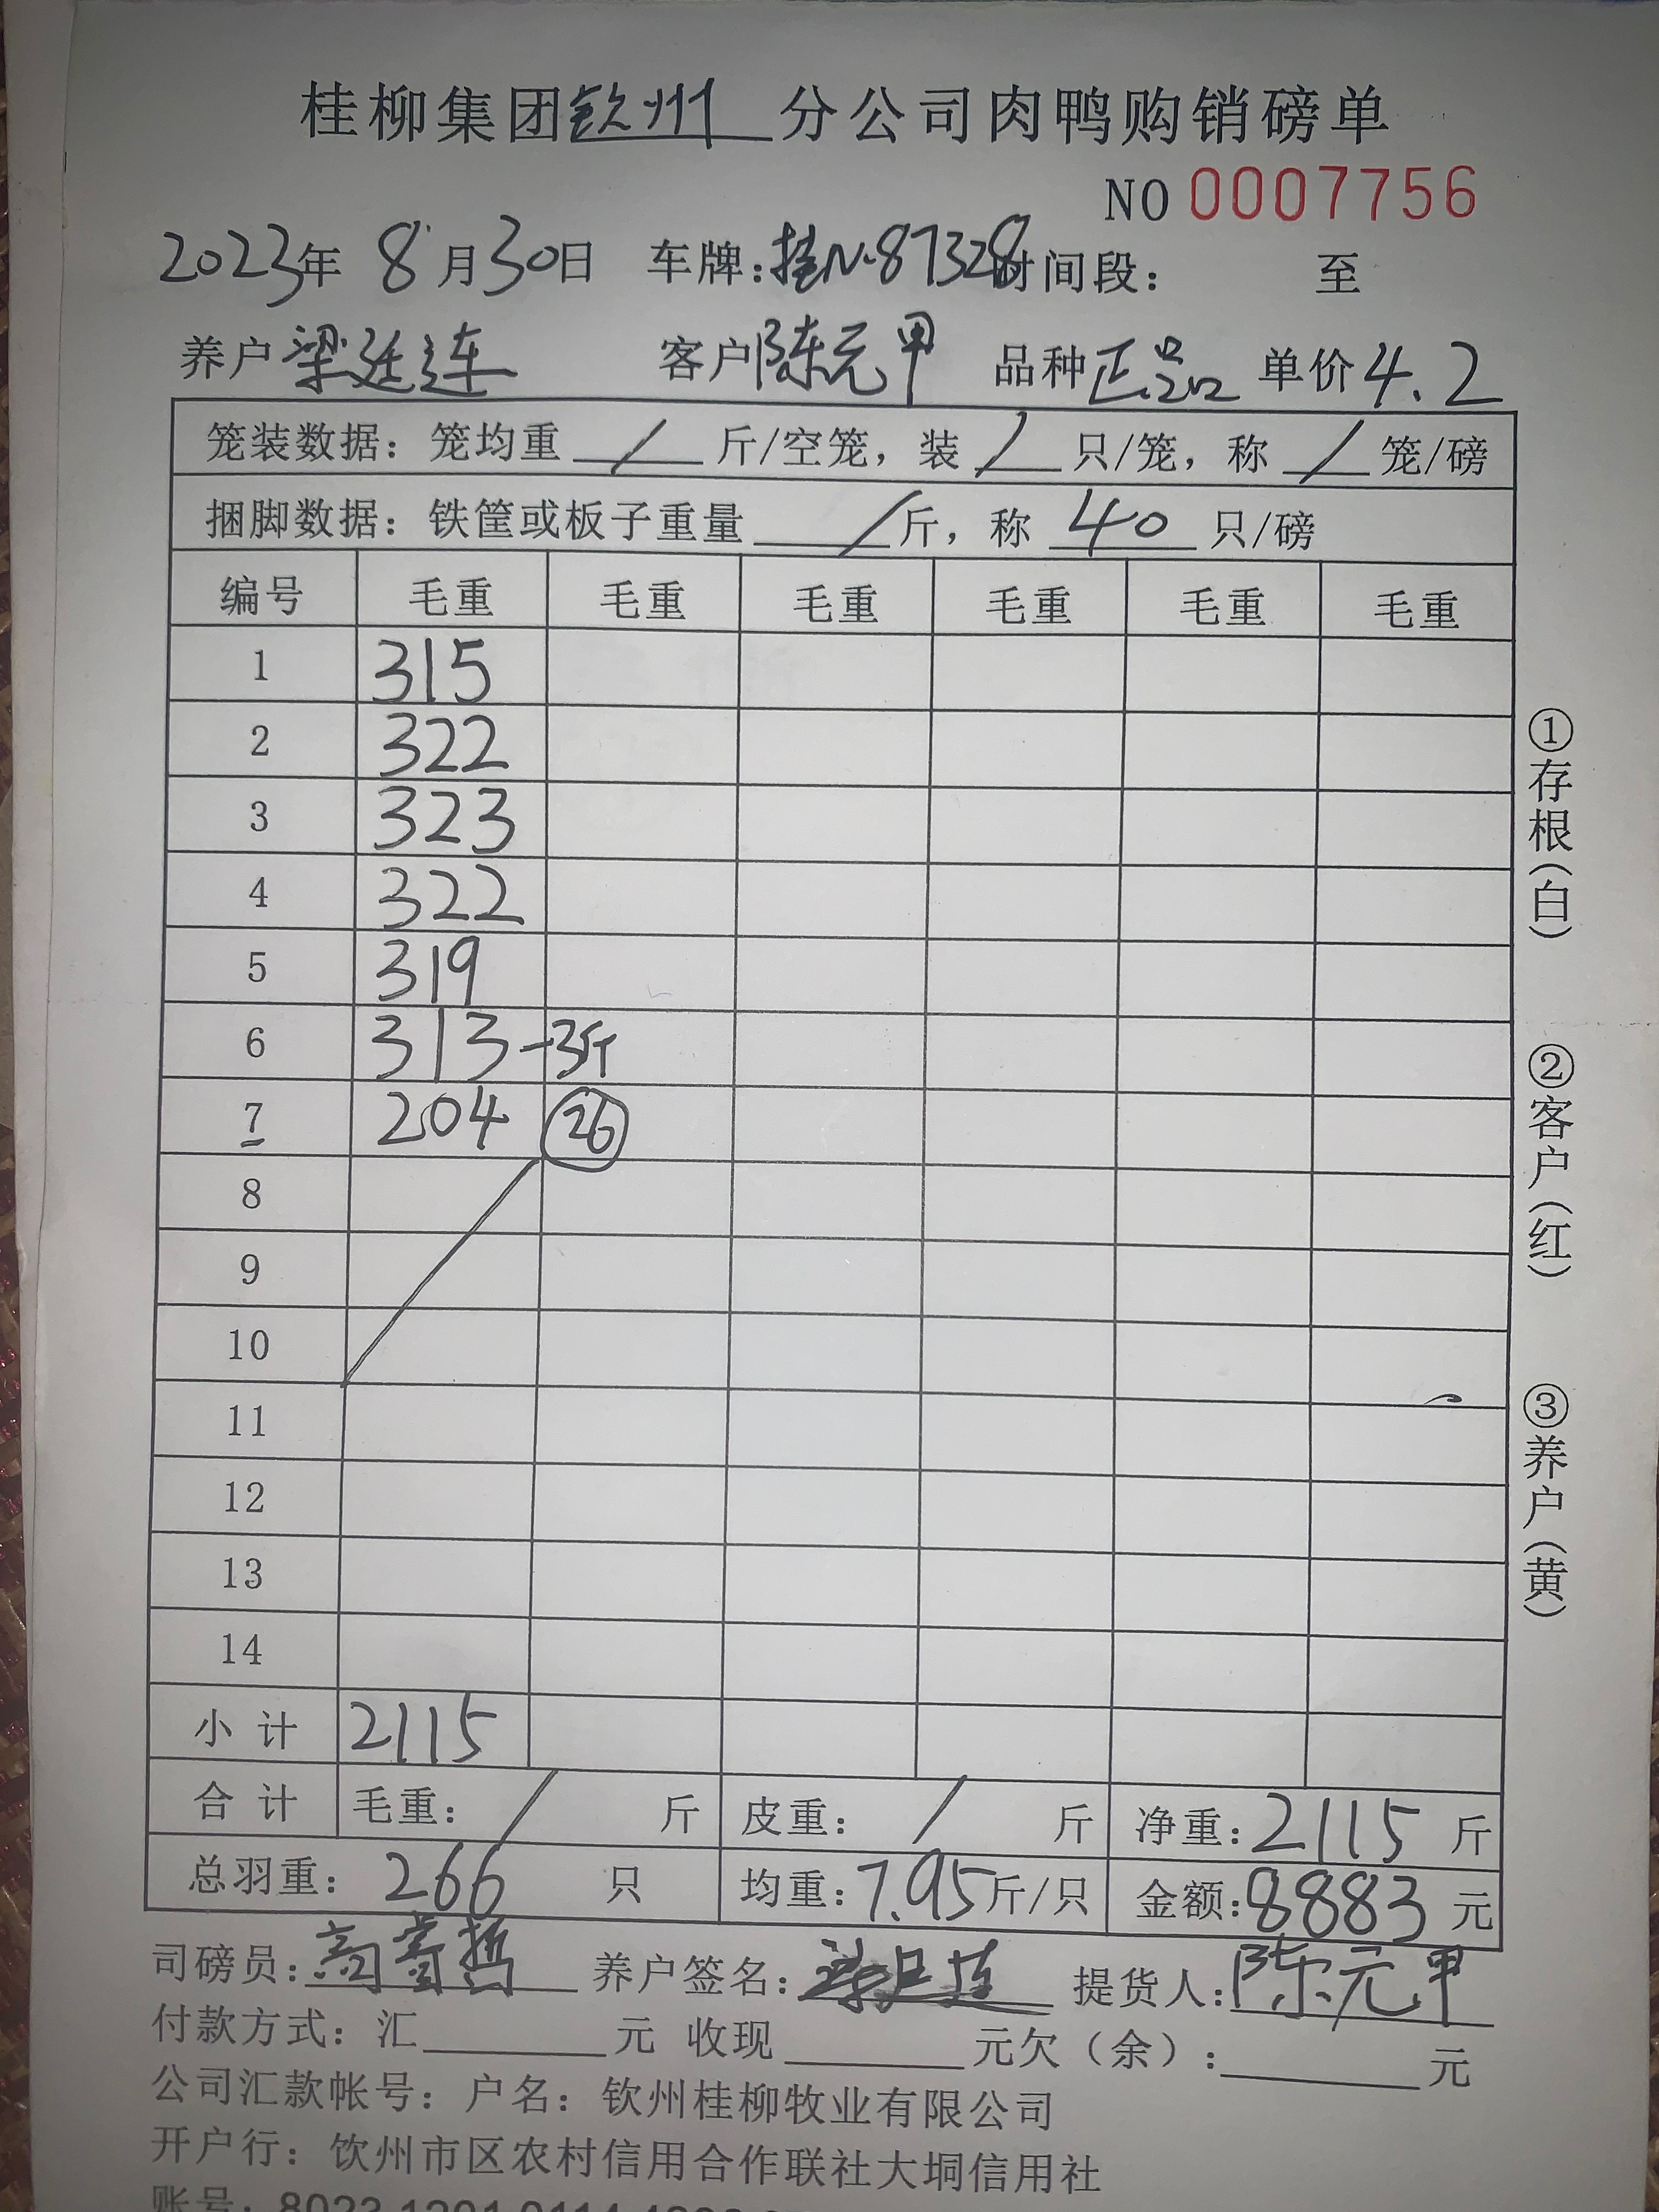 桂柳集团钦州分公司肉鸭购销磅单
NO 0007756
2023年 8月30日 车牌:桂N·87328时间段: 至
养户梁廷连 客户陈元甲 品种正品 单价4.2
笼装数据: 笼均重 / 斤/空笼, 装 / 只/笼, 称 / 笼/磅
捆脚数据: 铁筐或板子重量 / 斤, 称 40 只/磅
编号 毛重 毛重 毛重 毛重 毛重 毛重
1 315
2 322
3 323
4 322
5 319
6 313 -3斤
7 204 26
8
9
10
11
12
13
14
小 计 2115
合 计 毛重: / 斤 皮重: / 斤 净重: 2115 斤
总羽重: 266 只 均重: 7.95斤/只 金额: 8883 元
①存根(白)
②客户(红)
③养户(黄)
司磅员: 高 哲 养户签名: 梁 连 提货人: 陈元甲
付款方式: 汇 元 收现 元欠(余): 元
公司汇款帐号: 户名: 钦州桂柳牧业有限公司
开户行: 钦州市区农村信用合作联社大垌信用社
账号: